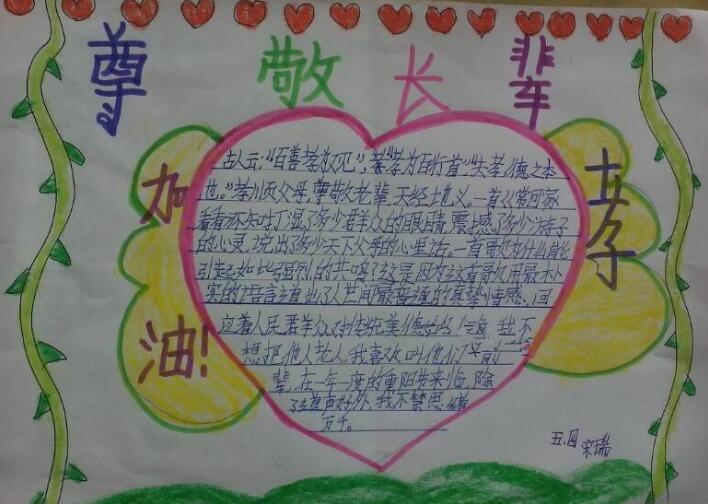 尊敬长辈
加油!
古人云:"百善孝为先","孝为百行首","夫孝,德之本
也。"孝顺父母,尊敬老辈,天经地义。一首《常回家
看看》不知打湿了多少君羊众的眼睛,震撼了多少游子
的心灵,说出了多少天下父母的心里话。一首歌为什么能
引起如此强烈的共鸣?这是因为这首歌用最朴
实的语言道出了人世间最普通的真挚情感,回
应着人民君羊众对传统美德的 我不
想把他人老人,我喜欢叫他们 前
辈,在一年一度的重阳节来临,除
了道声好外,我不禁思绪
万千。
五.四
宋瑞